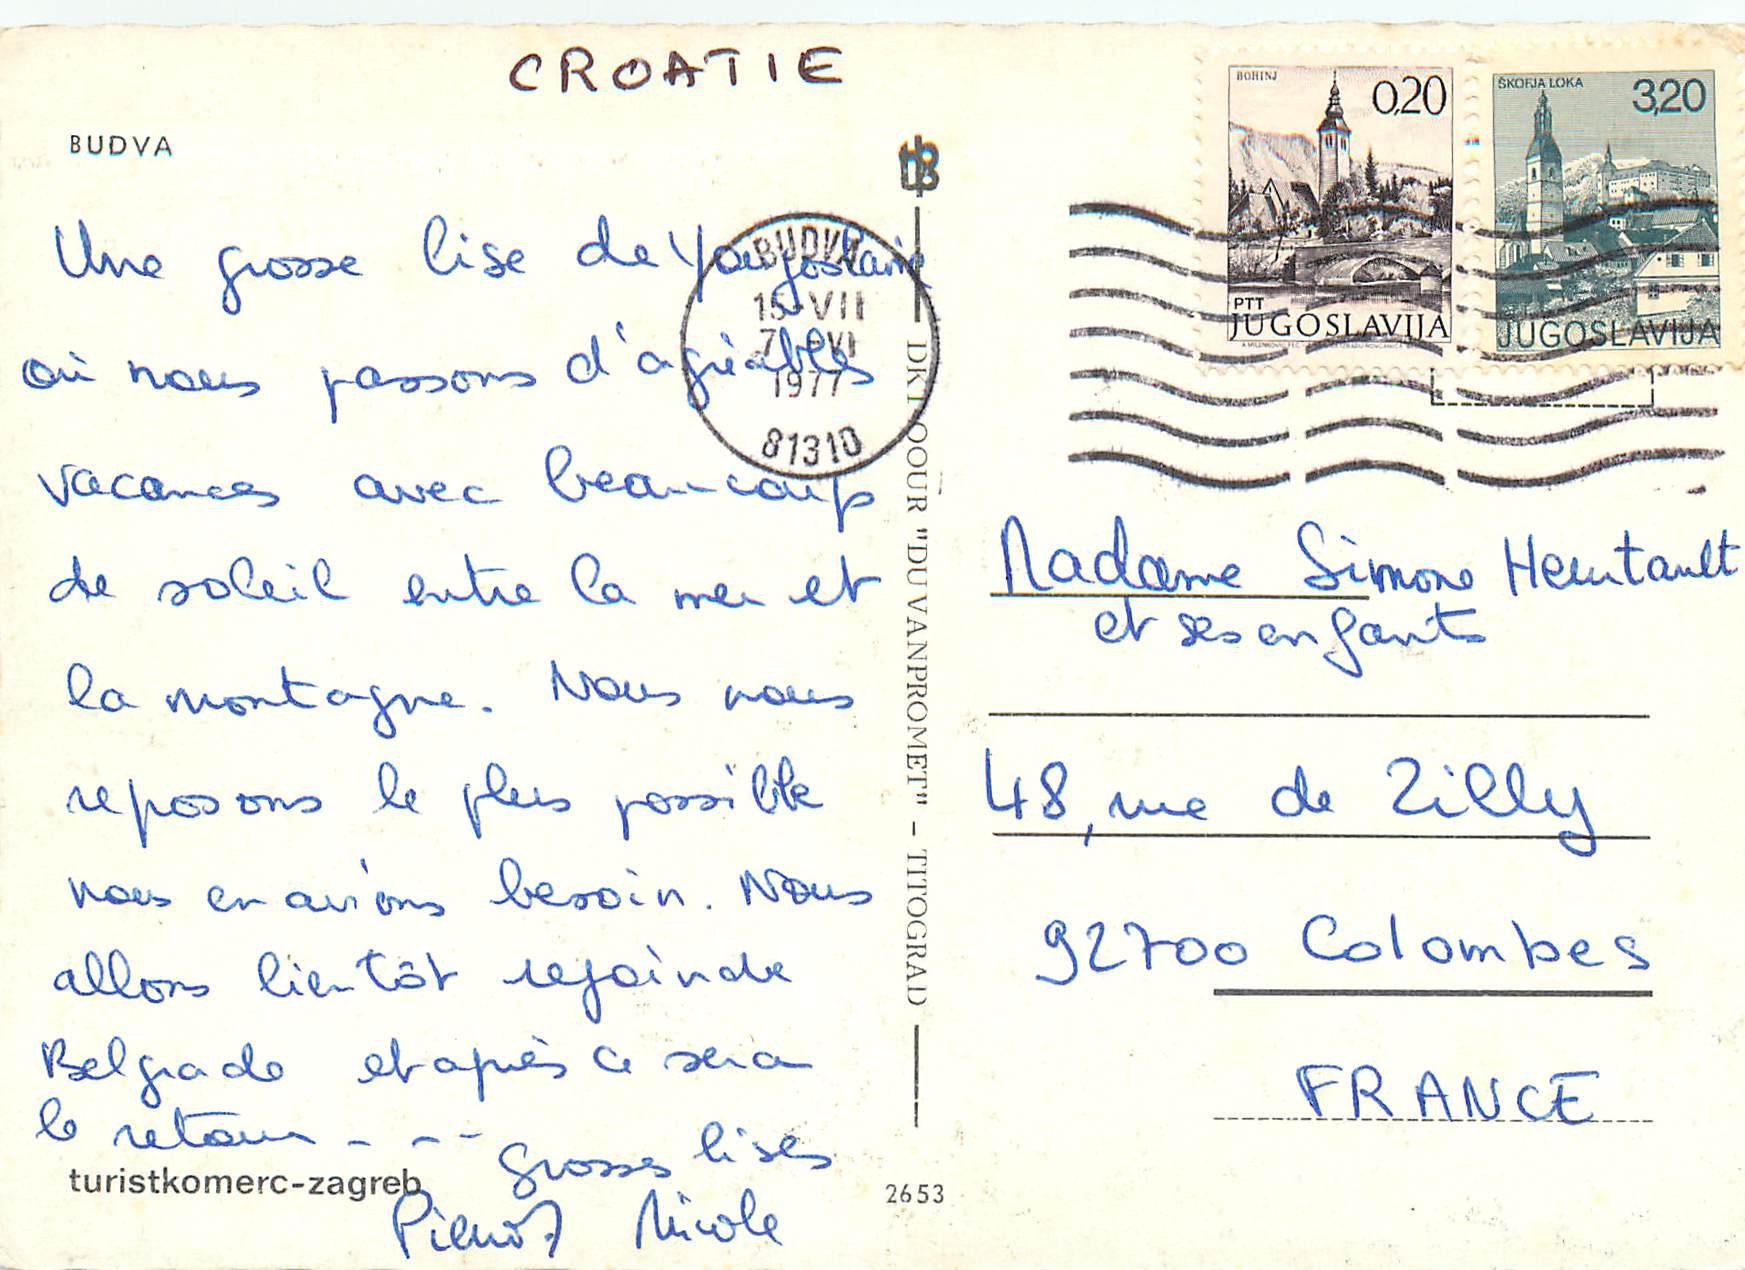 CROATIE
BUDVA
Une grosse bise de Yougoslavie
où nous passons d'agréables
vacances avec beaucoup
de soleil entre la mer et
la montagne. Nous nous
reposons le plus possible
nous en avions besoin. Nous
allons bientôt rejoindre
Belgrade et après ce sera
le retour - - -
grosses bises
Pierrot Nicole
turistkomerc-zagreb
2653
DKT OOUR "DUVANPROMET" - TITOGRAD
BUDVA
15-VII
1977
81310
BOHINJ
0,20
PTT
JUGOSLAVIJA
ŠKOFJA LOKA
3,20
JUGOSLAVIJA
Madame Simone Heurtault
et ses enfants
48, rue de Zilly
92700 Colombes
FRANCE